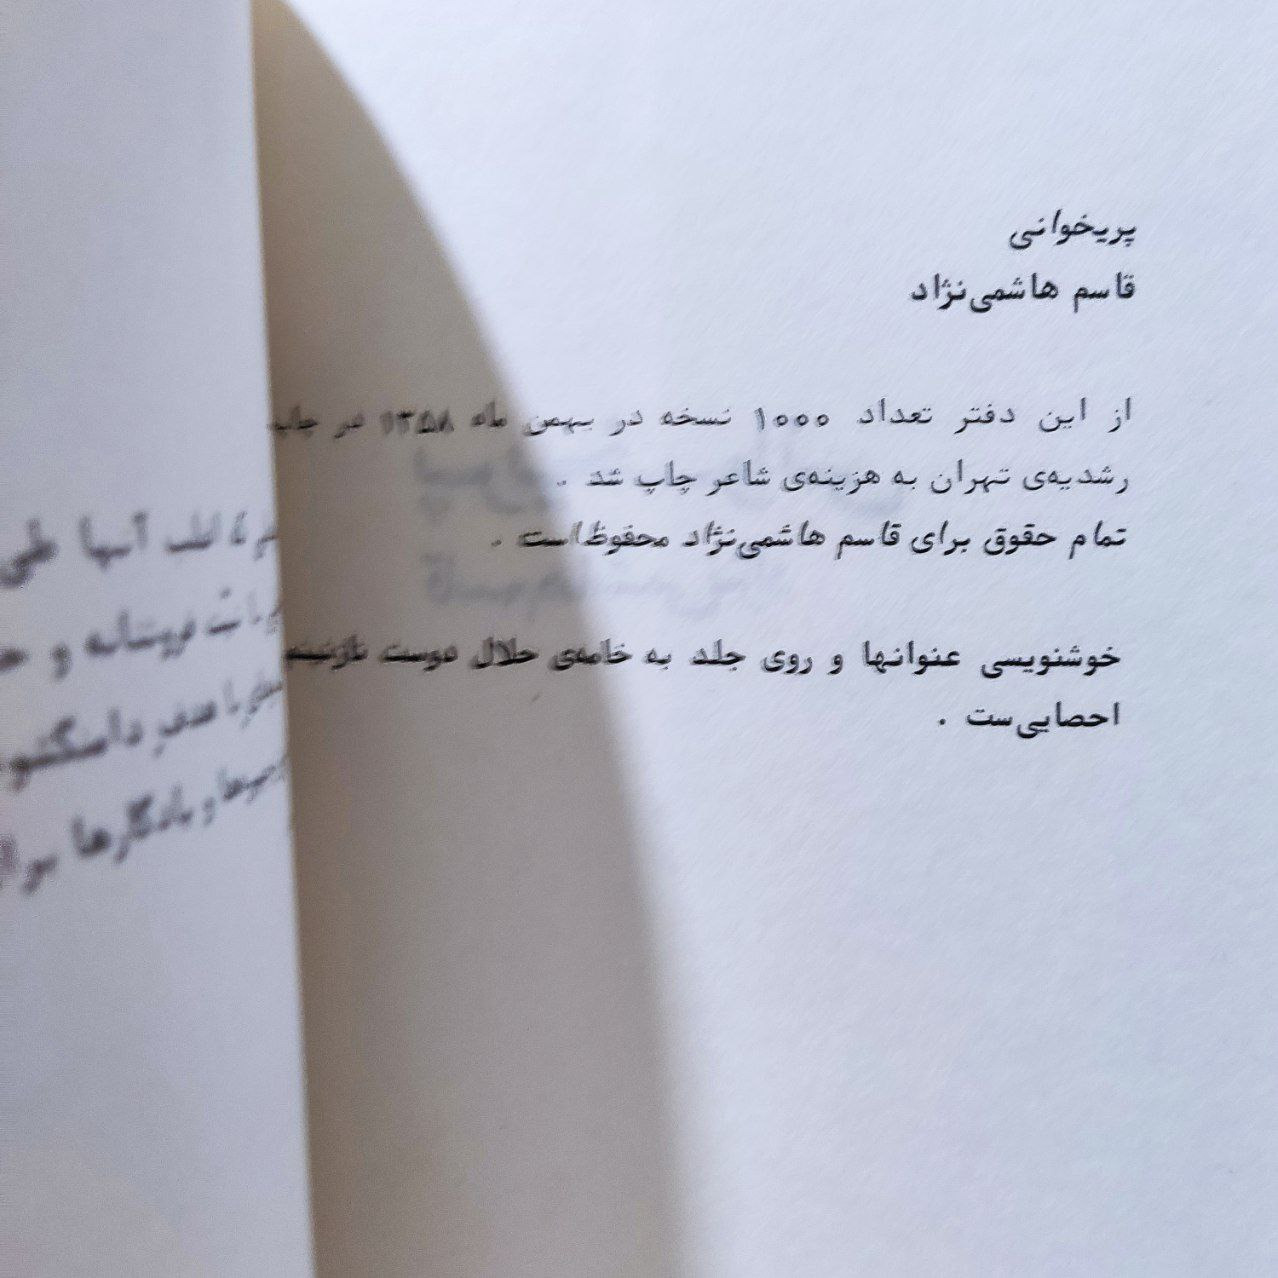 پریخوانی
قاسم هاشمی‌نژاد
از این دفتر تعداد ۱۰۰۰ نسخه در بهمن ماه ۱۳۵۸ در چاپ
رشدیه‌ی تهران به هزینه‌ی شاعر چاپ شد .
تمام حقوق برای قاسم هاشمی‌نژاد محفوظ است .
خوشنویسی عنوانها و روی جلد به خامه‌ی جلال دوست نازنینم
احصایی‌ست .
آنها طی
و
با هدف
و یادگارها